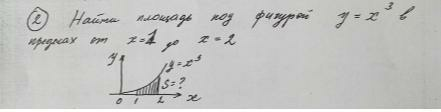 ② Найти площадь под фигурой y = x³ в
пределах от x=1 до x = 2
y
y=x³
S=?
0 1 2 x